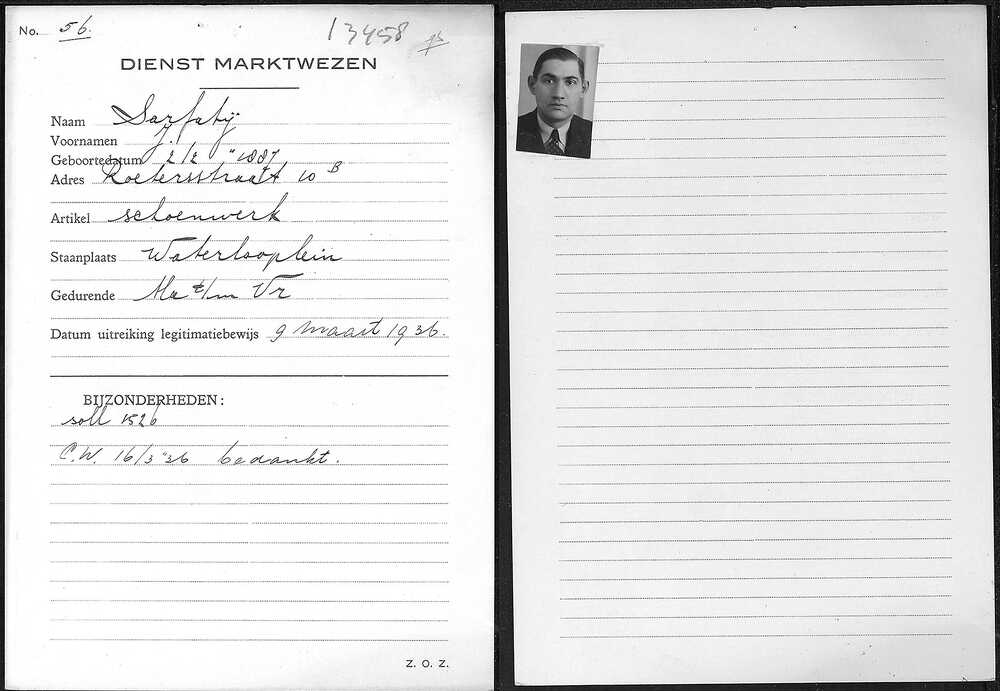 No. 56.
13458
DIENST MARKTWEZEN
Naam Sarfatij
Voornamen J.
Geboortedatum 2/2 " 1887
Adres Roetersstraat 10 B
Artikel schoenwerk
Staanplaats Waterlooplein
Gedurende Ma t/m Vr
Datum uitreiking legitimatiebewijs 9 maart 1936.
BIJZONDERHEDEN:
soll 1526
C.W. 16/3 '36 bedankt.
Z. O. Z.